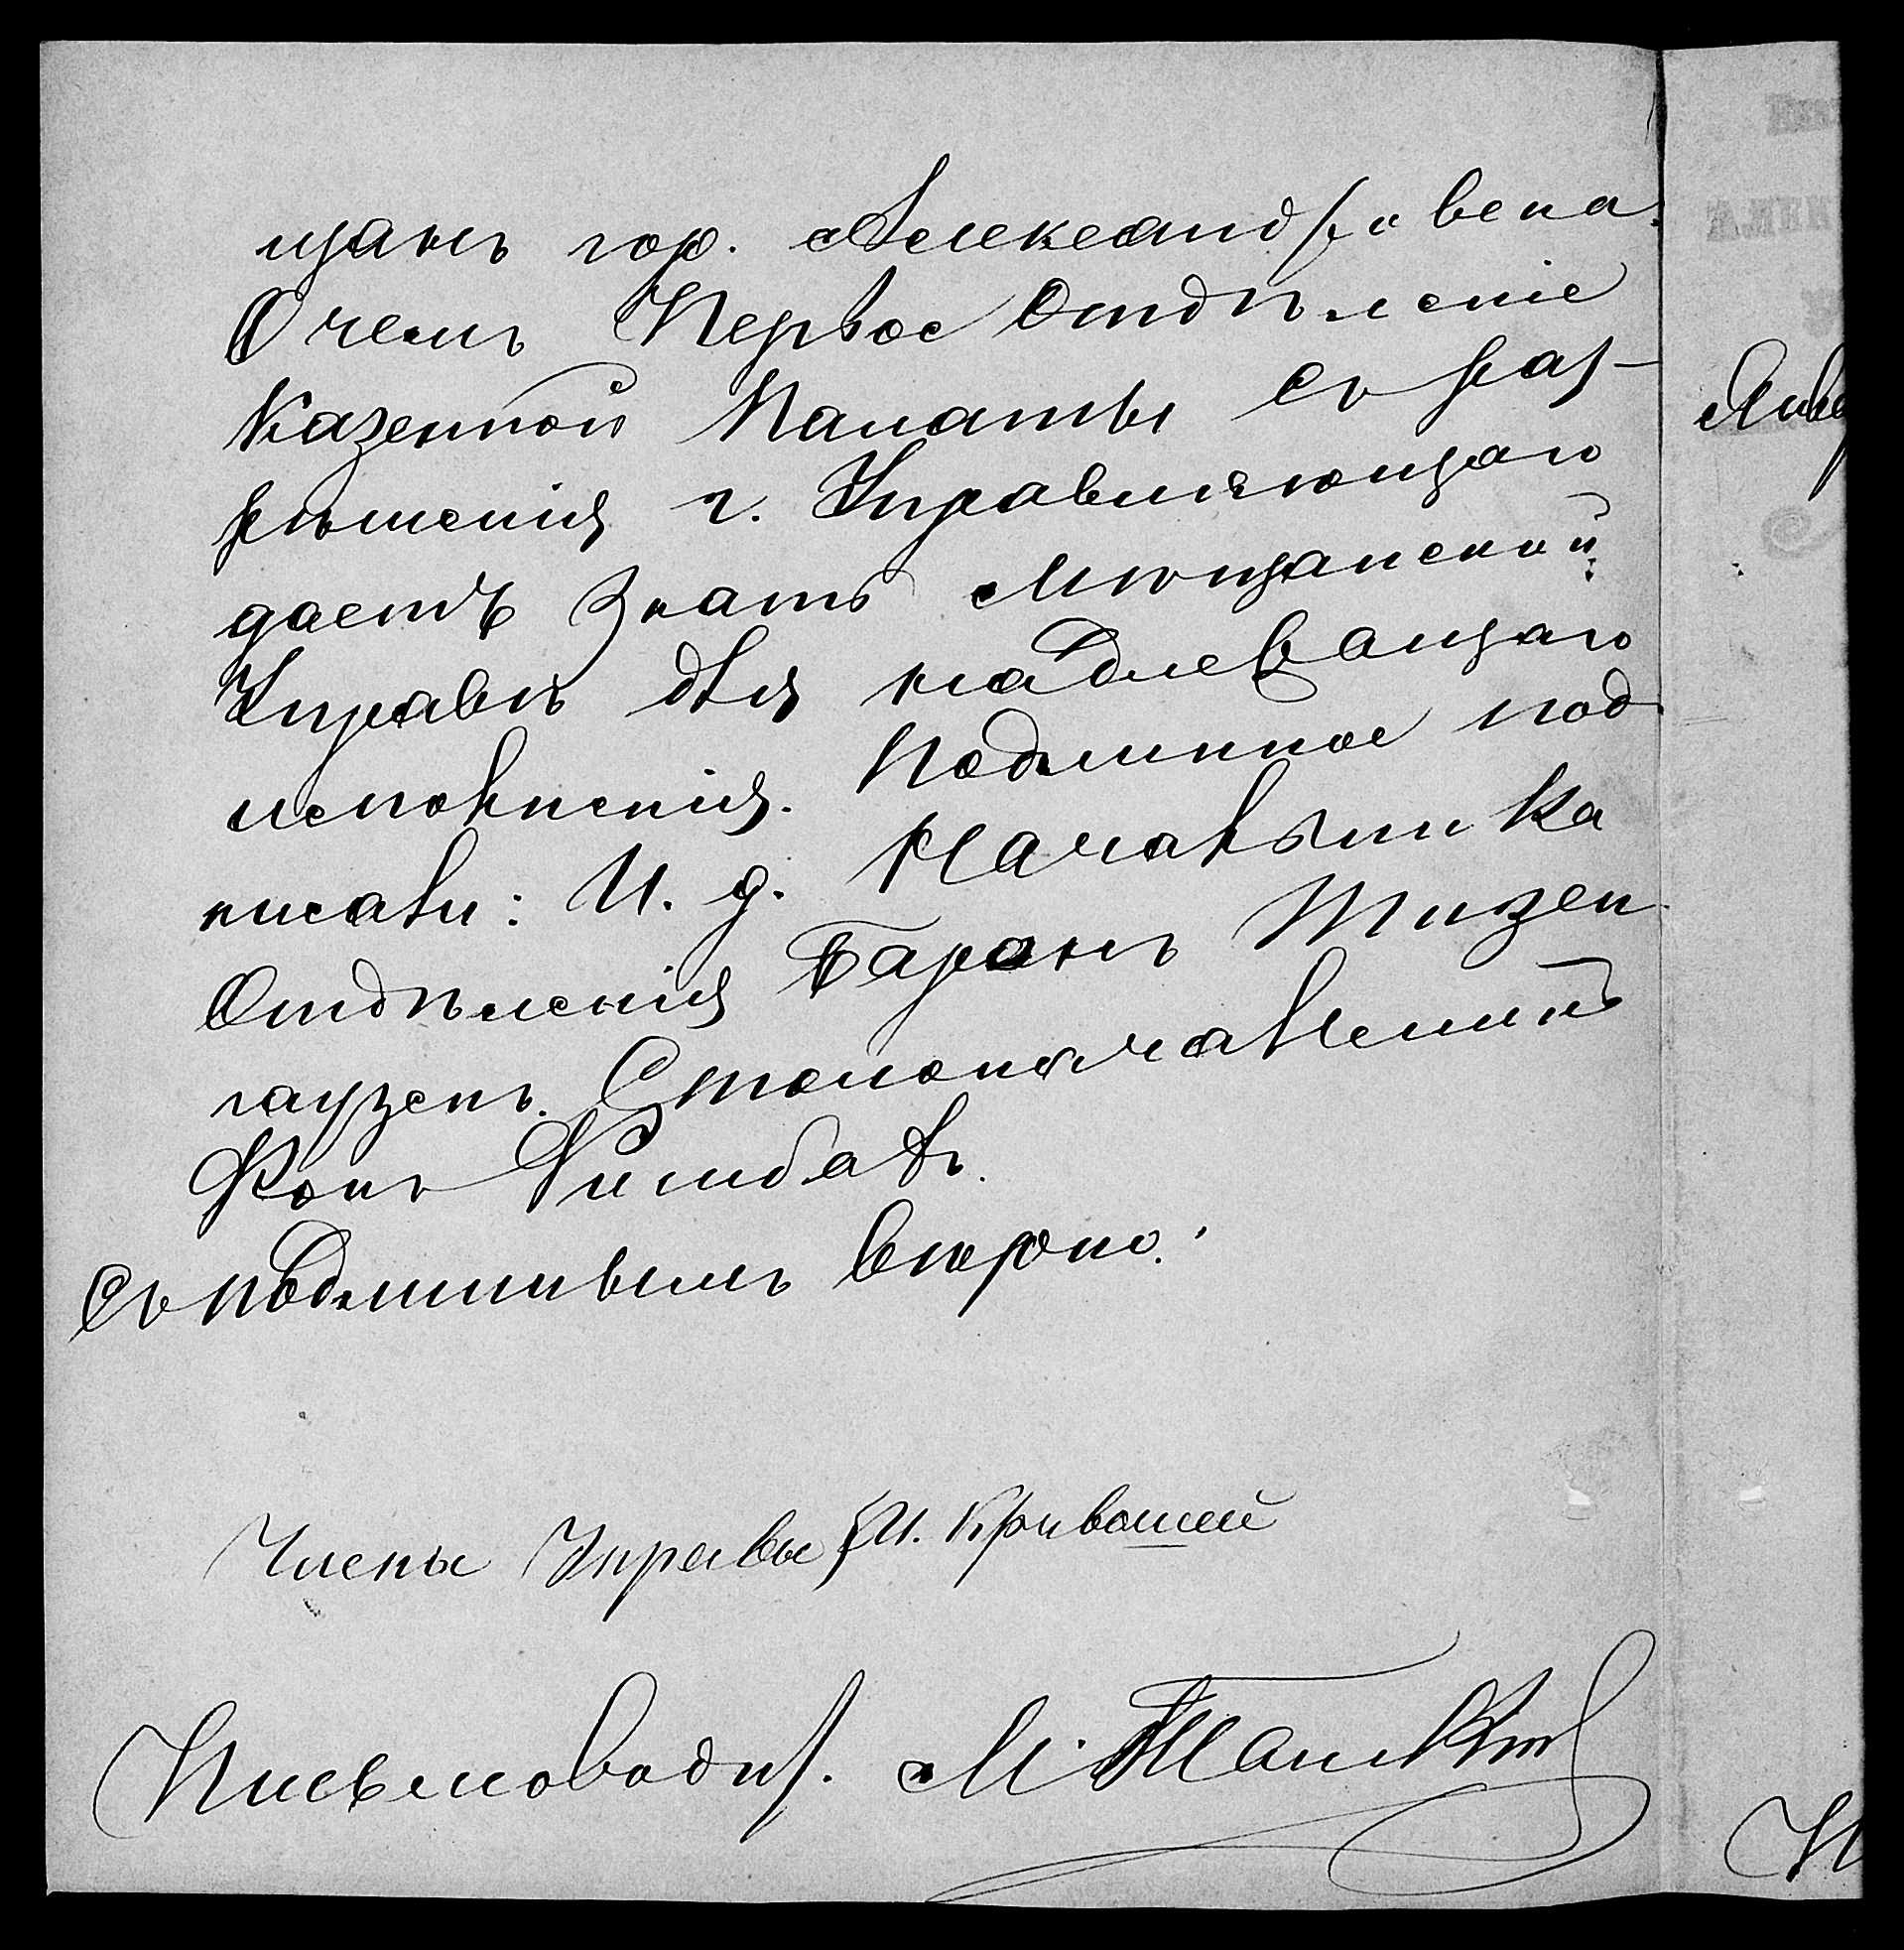 щанъ гор. Александровска.
О чемъ Первое Отдѣленіе
Казенной Палаты съ раз-
рѣшенія г. Управляющаго
даетъ знать Мѣщанской
Управѣ для надлежащаго
исполненія. Подлинное под
писали: И. д. Начальника
Отдѣленія Баронъ Тизен
гаузенъ. Столоначальникъ
Фонъ
Съ подлиннымъ вѣрно:
Члены Управы И. Кривошей
Письмоводит. М.
Янва